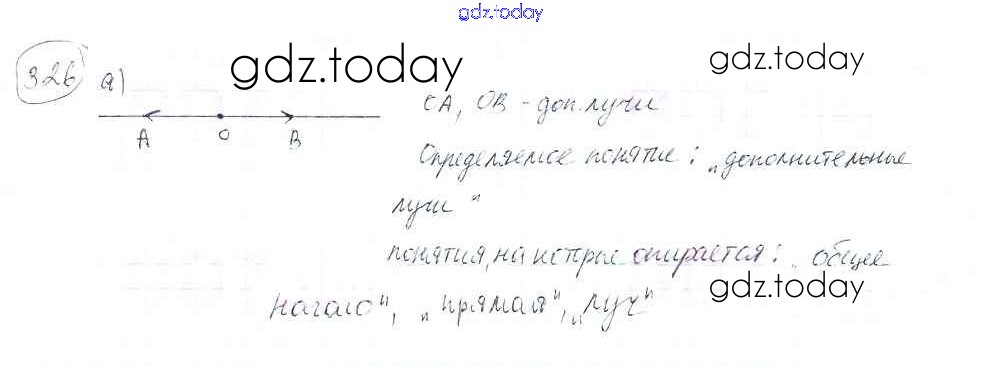 gdz.today
326 а)
gdz.today
gdz.today
A O B
OA, OB - доп. лучи
Определяемое понятие: „дополнительные
лучи"
понятия, на которые опирается: „общее
gdz.today
начало", „прямая", „луч"